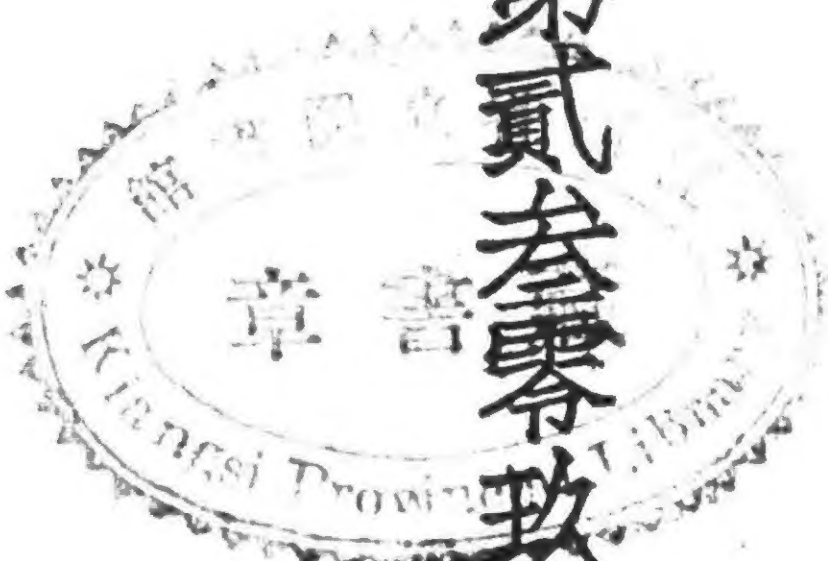 第貳叁零玖
館書圖
圖書章
Kiangsi Provincial Library